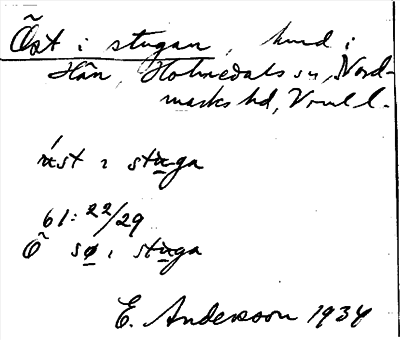 Öst i stugan, hmd i
Hån, Holmedals sn, Nord-
marks hd, Vrml.
úst ı stuga
61: 22/29
Õ sø ı stuga
E. Andersson 1934